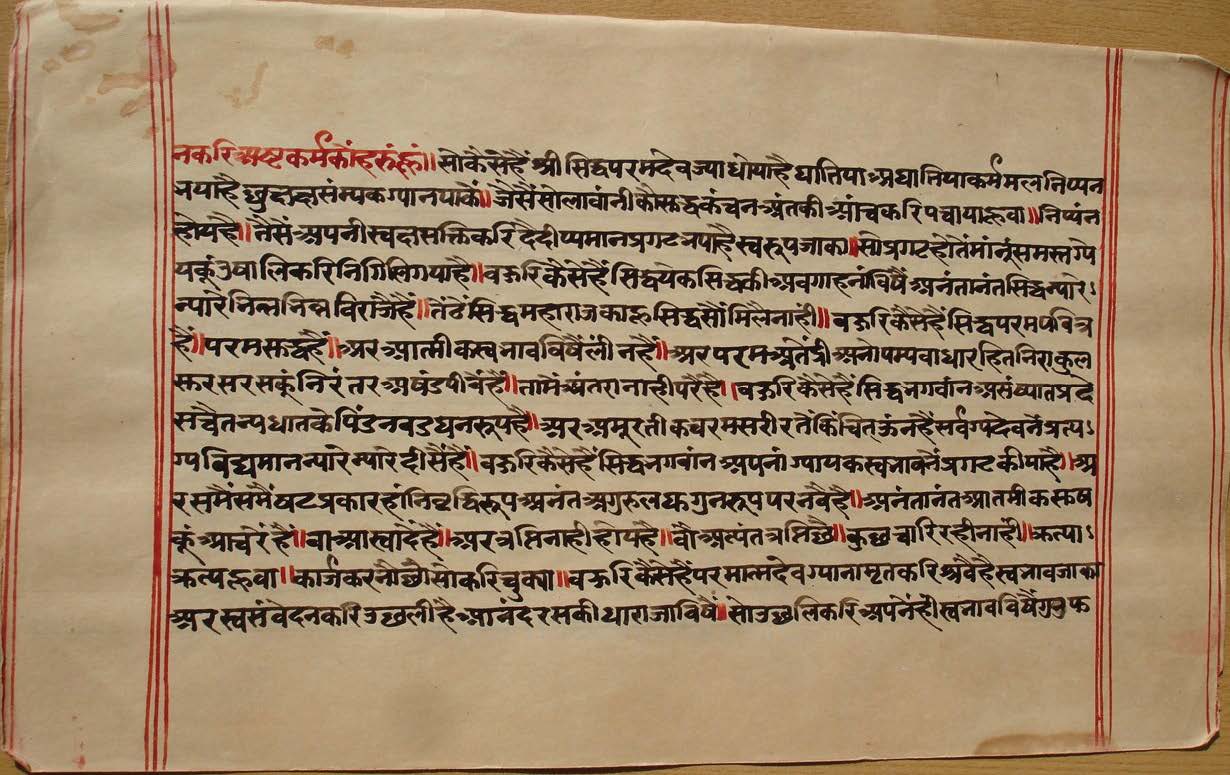 नकरिअष्टकर्मकौंहरूंहूं॥ सोकैसेहैं श्रीसिद्धपरमदेव ज्याधोयाहै घातियाअघातियाकर्ममल निप्पन
भयाहै सम्यकग्यानपाकैं॥ जैसैंसोलावांनीकौसुद्धकंचनअंतकीआंचकरिपचायाहूवा॥ निप्पंन
होयहै॥ तैसैंअपनीस्वछसक्तिकरिदैदीप्यमानप्रगटभयाहैस्वरूपजाका॥ सोप्रगटहोतैंमांनूंसमस्तग्ये
यकूं करिनिगिलिगयाहै॥ बहुरिकैसेहैंसिद्धयेकसिद्धकीअवगाहनाविषैंअनंतानंतसिद्धन्यारे
न्यारेभिन्नभिन्नविराजैहैं॥ सिद्धमहाराजकाहूसिद्धसौंमिलैनाहीं॥ बहुरिकैसेहैंसिद्धपरमपवित्र
हैं॥ परमसुद्धहैं॥ अरआत्मीकस्वभावविषैंलींनहैं॥ अरपरमअतेंद्रीअनोपम्यबाधारहितनिराकुल
सुरसरसकूंनिरंतरअषंडपीवैंहैं॥ तामैंअंतरानाहीपरैहै॥ बहुरिकैसेहैंसिद्धभगवांनअसंष्यातप्रदे
सचैतन्यधातकेपिंडनबडघनरूपहै॥ अरअमूरतीकचरमसरीरतैंकिंचितऊंनहैंसर्वग्यदेवनैंप्रत्य
ग्यबिद्यमानन्यारेन्यारेदीसैंहैं॥ बहुरिकैसेहैंसिद्धभगवांनअपनांग्यायकस्वभावनैंप्रगटकीयाहै॥ अ
रसमैंसमैंषटप्रकारहांनिबृद्धिरूपअनंतअगुरुलघुगुनरूपपरनवैहै॥ अनंतानंतआतमीकसुष
कूंआचरैंहैं॥ वाआस्वादैंहैं॥ अरत्रप्तिनाहीहोयहै॥ वौअत्यंतत्रप्तिछै॥ कुछचारिरहीनाही॥ क्रत्या
क्रत्यहूवा॥ कार्जकरनौछौसोकरिचुक्या॥ बहुरिकैसेहैंपरमात्मदेवग्यानामृतकरिश्रवैहैस्वभावजाका
अरस्वसंवेदनकरिउछलीहैआनंदरसकीधाराजाविषैं॥ सोउछलिकरिअपनेंहीस्वभावविषैं